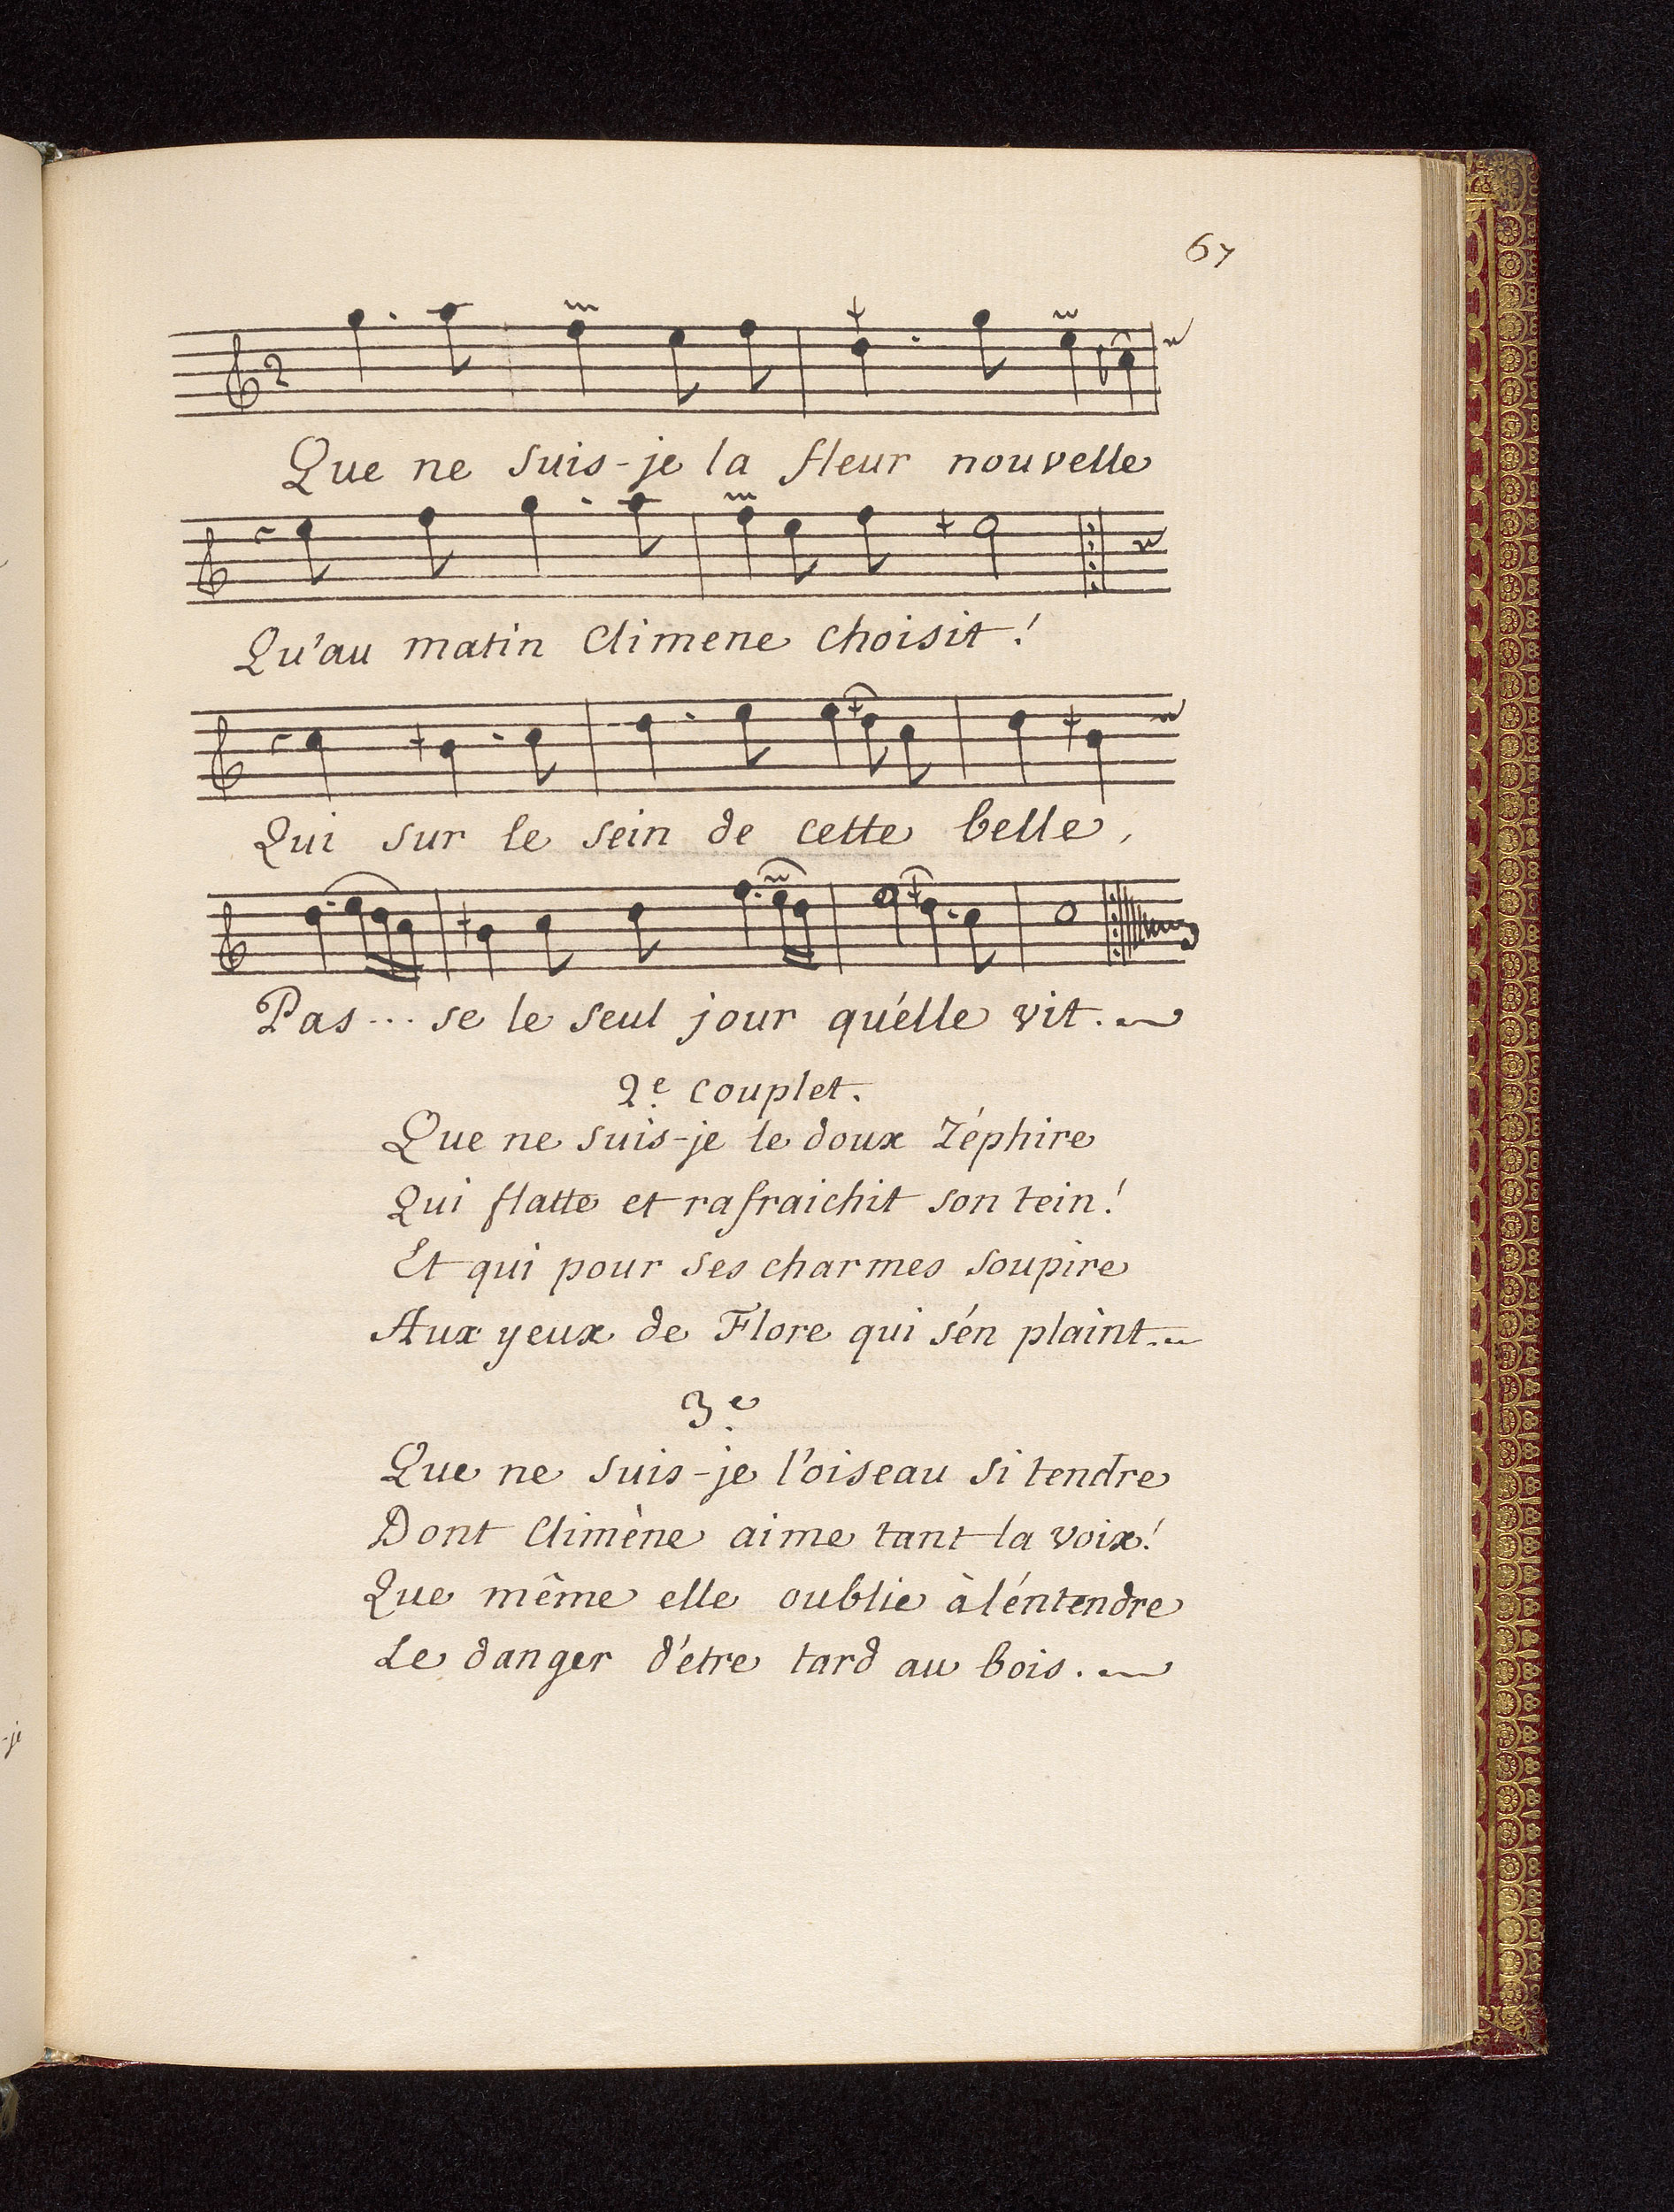 67
2
Que ne suis-je la fleur nouvelle
Qu'au matin Climene choisit !
Qui sur le sein de cette belle,
Pas... se le seul jour qu'élle vit.
2.e couplet.
Que ne suis-je le doux Zéphire
Qui flatte et rafraichit son tein !
Et qui pour ses charmes soupire
Aux yeux de Flore qui s'én plaint.
3.e
Que ne suis-je l'oiseau si tendre
Dont Climène aime tant la voix !
Que même elle oublie à l'éntendre
Le danger d'étre tard au bois.
-je